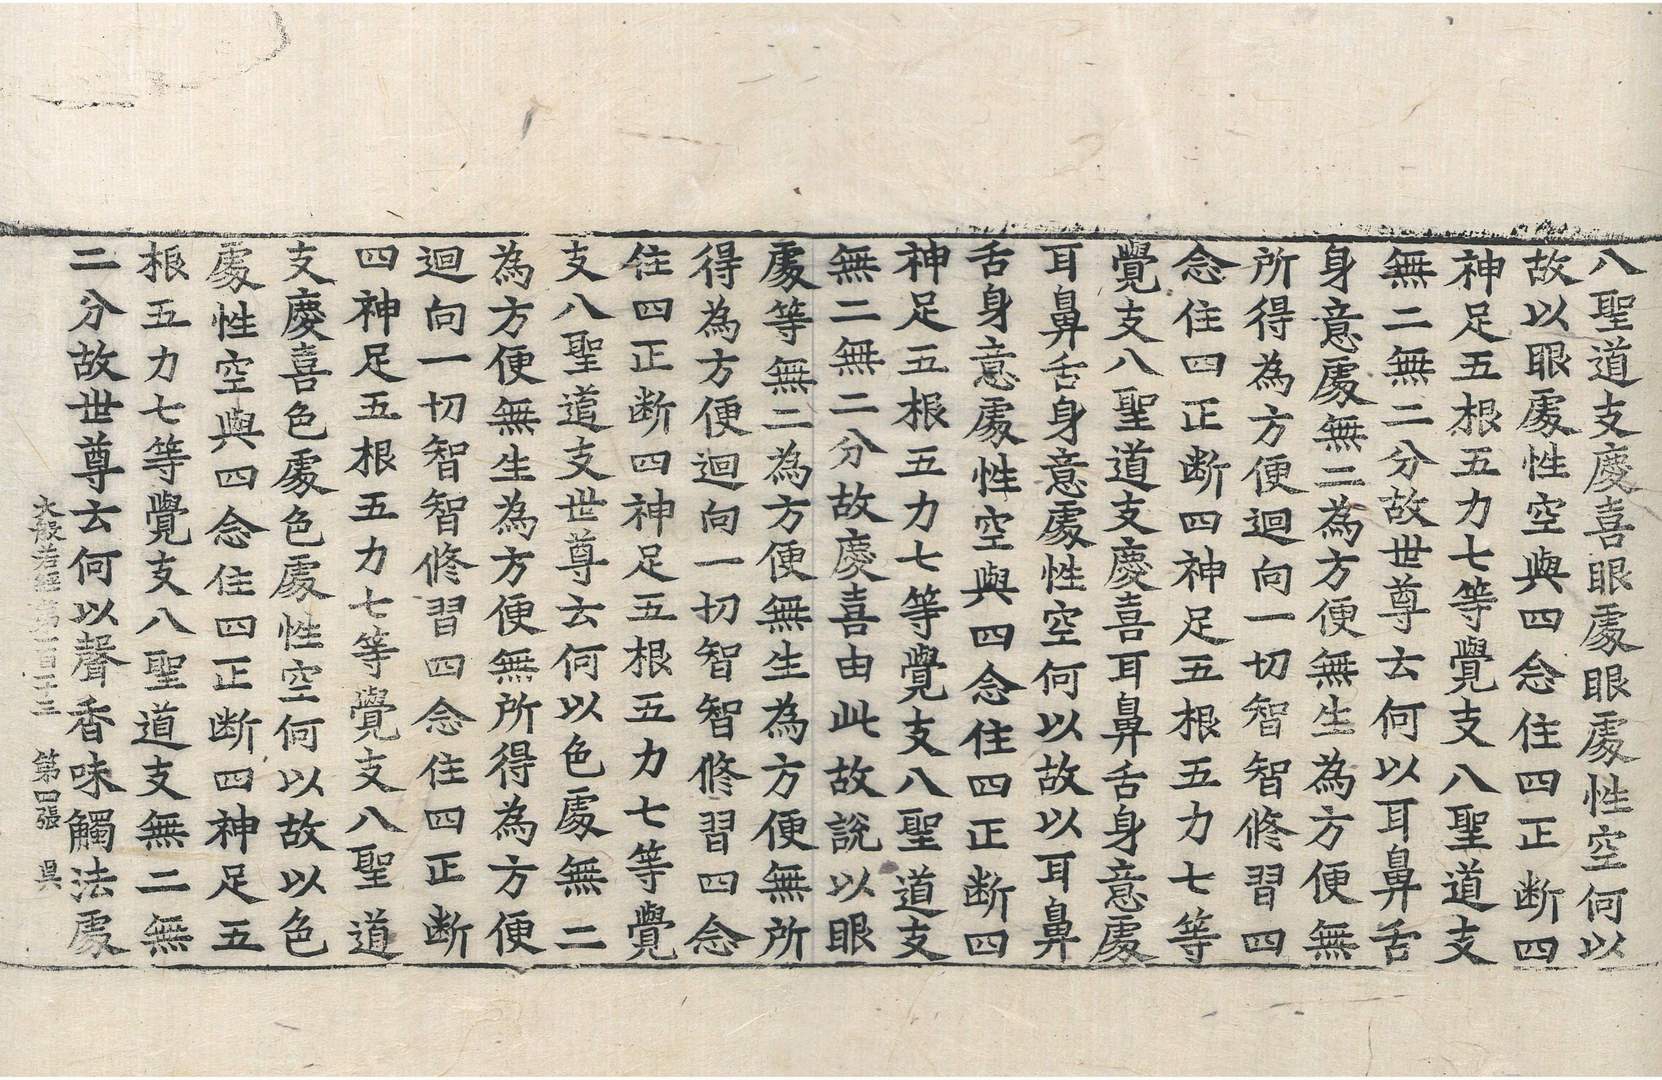 八聖道支慶喜眼處眼處性空何以
故以眼處性空與四念住四正断四
神足五根五力七等覺支八聖道支
無二無二分故世尊云何以耳鼻舌
身意處無二為方便無生為方便無
所得為方便迴向一切智智修習四
念住四正断四神足五根五力七等
覺支八聖道支慶喜耳鼻舌身意處
耳鼻舌身意處性空何以故以耳鼻
舌身意處性空與四念住四正断四
神足五根五力七等覺支八聖道支
無二無二分故慶喜由此故說以眼
處等無二為方便無生為方便無所
得為方便迴向一切智智修習四念
住四正断四神足五根五力七等覺
支八聖道支世尊云何以色處無二
為方便無生為方便無所得為方便
迴向一切智智修習四念住四正断
四神足五根五力七等覺支八聖道
支慶喜色處色處性空何以故以色
處性空與四念住四正断四神足五
根五力七等覺支八聖道支無二無
二分故世尊云何以聲香味觸法處
大般若經第一百一十三 第四張 昃